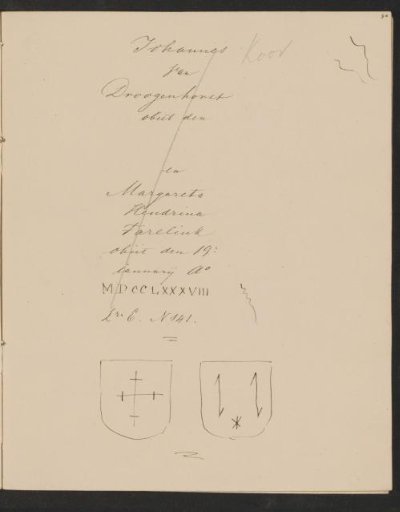 Johannes Koor
Van
Droogenhorst
obiit den
en
Margareta
Hendrina
obiit den 19:
January Ao
MDCCLXXXVIII
N 141.